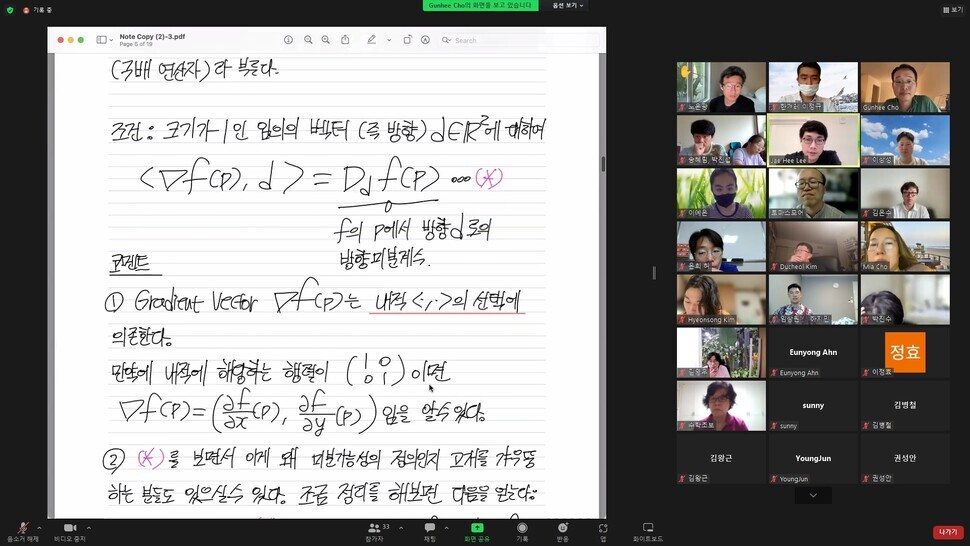 기록 중
Gunhee Cho의 화면을 보고 있습니다
옵션 보기
보기
Note Copy (2)-3.pdf
Page 5 of 19
Search
(구배 연산자)라 부른다.
조건: 크기가 1인 임의의 벡터 (즉 방향) d∈ℝ²에 대하여
<∇f(p), d> = D_d f(p) ⋯ (*)
f의 p에서 방향 d로의
방향미분계수.
코멘트
① Gradient Vector ∇f(p)는 내적 <,·>의 선택에
의존한다.
만약에 내적에 해당하는 행렬이 (1 0
0 1) 이면
∇f(p) = (∂f/∂x (p), ∂f/∂y (p)) 임을 알수있다.
② (*)를 보면서 이게 왜 미분가능성의 정의인지 고개를 갸우뚱
하는 분들도 있으실수 있다. 조금 정리를 해보면 다음을 얻는다:
노은영
Gunhee Cho
송해원, 박진설
Jae Hee Lee
이상성
이예은
토마스모어
김은수
윤희 허
Ducheol Kim
Mia Cho
Hyebnsong Kim
박진수
Eunyong Ahn
Eunyong Ahn
정효
이정효
수학초보
sunny
sunny
김병철
김병철
김왕근
김왕근
YoungJun
YoungJun
권성안
권성안
음소거 해제
비디오 중지
33
참가자
채팅
화면 공유
기록
반응
앱
화이트보드
나가기